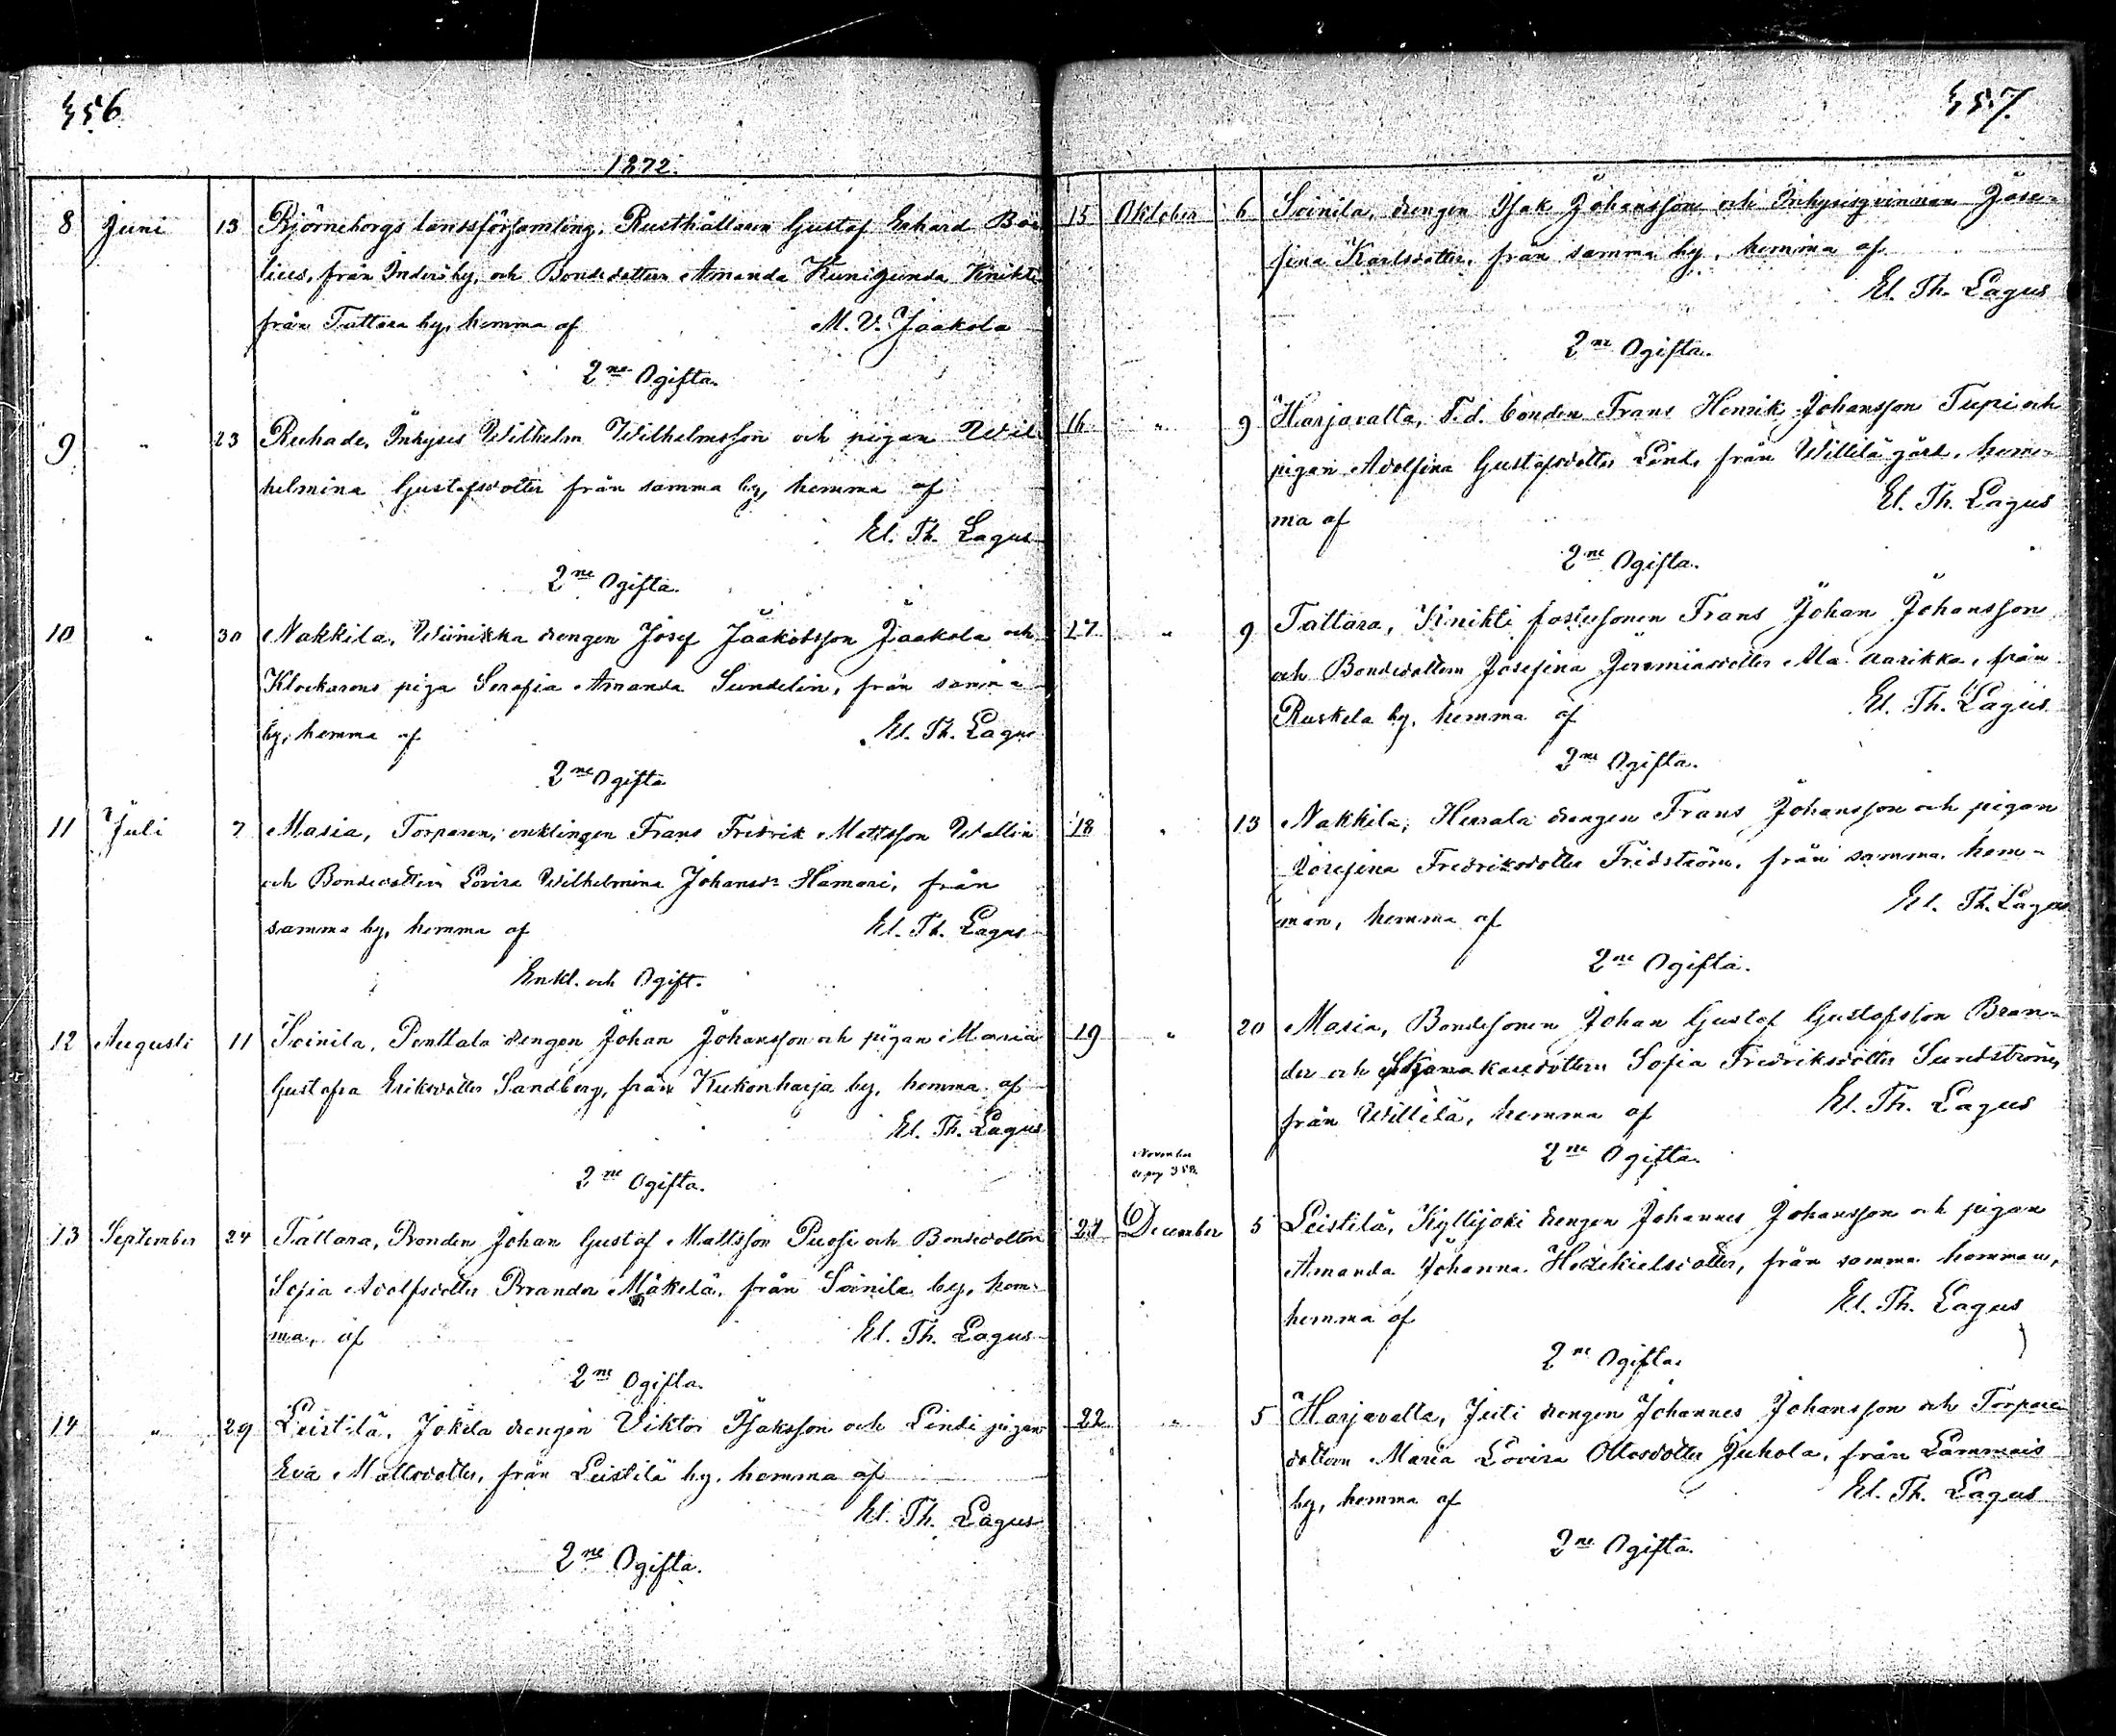 356
1872.
8 Juni 13 Björneborgs landsförsamling, Rusthållaren Gustaf Erhard Boe
lius, från Inderiby, och Bondedottern Amanda Kunigunda Knikti
från Tattara by, hemma af M. V. Jaakola
2ne Ogifta.
9 " 23 Ruhade, Inhyses Wilhelm Wilhelmsson och pigan Wil
helmina Gustafsdotter från samma by, hemma af
El. Th. Lagus
2ne Ogifta.
10 " 30 Nakkila, Wiinikka drengen Josef Jaakobsson Jaakola och
Klockarens piga Serafia Amanda Sundelin, från samma
by, hemma af El. Th. Lagus
2ne Ogifta
11 Juli 7 Masia, Torparen, enklingen Frans Fredrik Mattsson Wallin
och Bondedottern Lovisa Wilhelmina Johansdr Hamari, från
samma by, hemma af El. Th. Lagus
Enkl. och Ogift.
12 Augusti 11 Soinila, Penttala drengen Johan Johansson och pigan Maria
Gustafva Eriksdotter Sandberg, från Kukonharja by, hemma af
El. Th. Lagus
2ne Ogifta.
13 September 24 Tattara, Bonden Johan Gustaf Mattsson Puosi och Bondedottern
Sofia Adolfsdotter Brander Mäkelä, från Soinila by, hem-
ma, af El. Th. Lagus
2ne Ogifta.
14 " 29 Leistilä, Jokela drengen Viktor Isaksson och Lindi pigan
Eva Mattsdotter, från Leistilä by, hemma af
El. Th. Lagus
2ne Ogifta.
357.
15 Oktober 6 Soinila, drengen Isak Johansson och Inhysesqvinnan Jose-
fina Karlsdotter, från samma by, hemma af
El. Th. Lagus
2ne Ogifta.
16 " 9 Harjavalta, F.d. bonden Frans Henrik Johansson Tupi och
pigan Adolfina Gustafsdotter Lind, från Willilä gård, hem-
ma af El. Th. Lagus
2ne Ogifta.
17 " 9 Tattara, Knikti fostersonen Frans Johan Johansson
och Bondedottern Josefina Jeremiasdotter Ala aarikka, från
Ruskela by, hemma af El. Th. Lagus
2ne Ogifta.
18 " 13 Nakkila, Herrala drengen Frans Johansson och pigan
Josefina Fredriksdotter Fridström, från samma hem-
man, hemma af El. Th. Lagus
2ne Ogifta.
19 " 20 Masia, Bondesonen Johan Gustaf Gustafsson Bran-
der och Skomakaredottern Sofia Fredriksdotter Sundström,
från Willilä, hemma af El. Th. Lagus
2ne Ogifta.
November
se pag 358.
21 December 5 Leistilä, Kyllijoki drengen Johannes Johansson och pigan
Amanda Johanna Hezekielsdotter, från samma hemman,
hemma af El. Th. Lagus
2ne Ogifta.
22 " 5 Harjavalta, Juti drengen Johannes Johansson och Torpare
dottern Maria Lovisa Ottosdotter Juhola, från Lammais
by, hemma af El. Th. Lagus
2ne Ogifta.